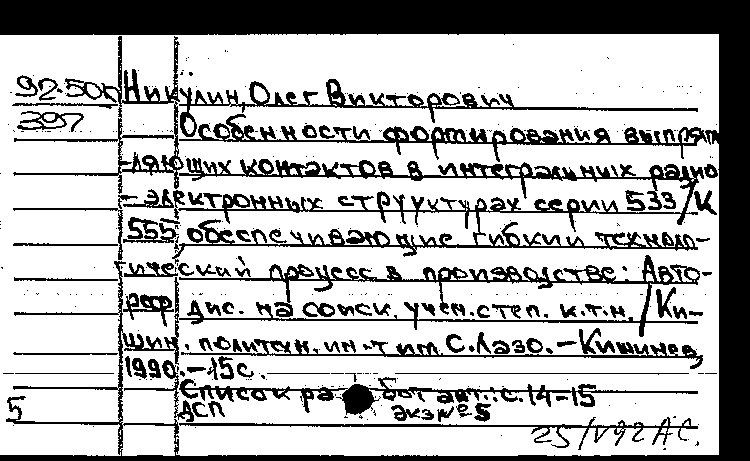 92-500 Никулин, Олег Викторович
397 Особенности формирования выпрям
-ляющих контактов в интегральных радио
-электронных структурах серии 533/К
555, обеспечивающие гибкий техноло-
гический процесс в производстве: Авто-
реф. дис. на соиск. учен. степ. к.т.н. / Ки-
шин. политехн. ин-т им. С. Лазо. - Кишинев,
1990. - 15 с.
Список работ авт.: с. 14-15
5 АСП экз № 5
25/V92 АС.